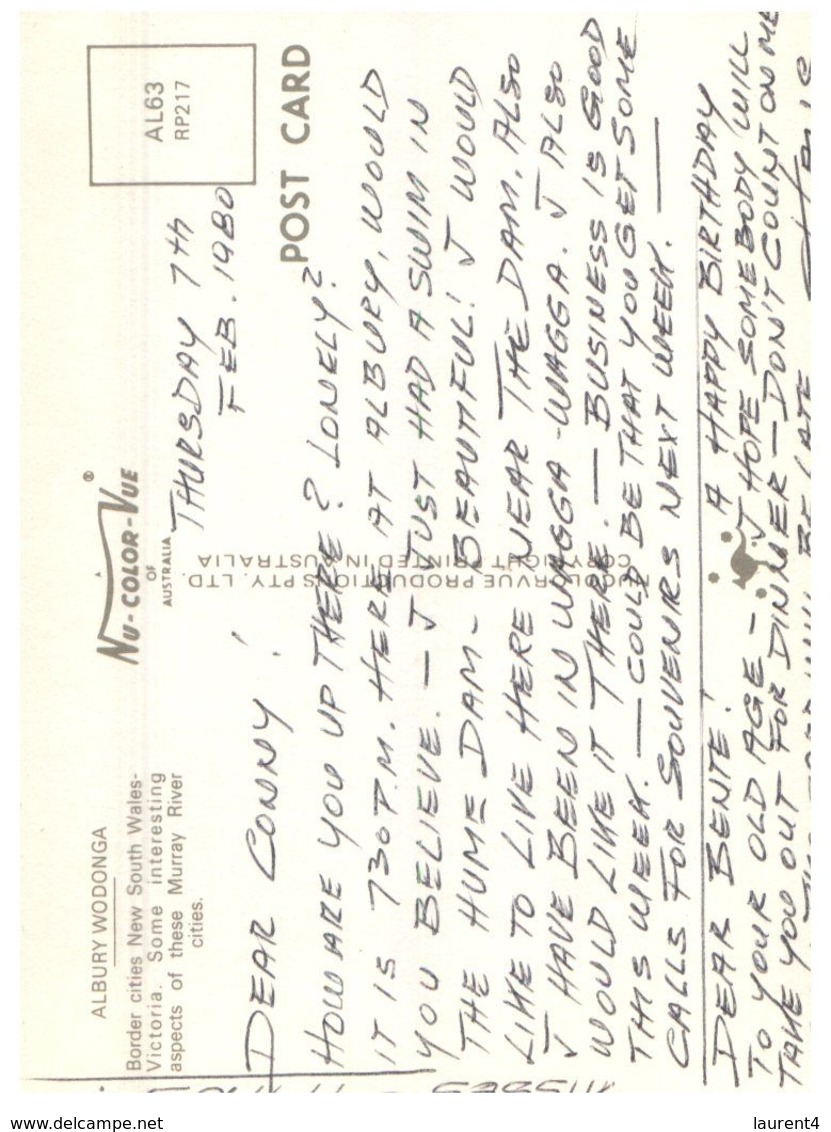 ALBURY WODONGA
Border cities New South Wales-
Victoria. Some interesting
aspects of these Murray River
cities.
NU-COLOR-VUE ®
OF
AUSTRALIA
AL63
RP217
POST CARD
THURSDAY 7th
FEB. 1980
DEAR CONNY!
HOW ARE YOU UP THERE? LONELY?
IT IS 730 P.M. HERE AT ALBURY, WOULD
YOU BELIEVE. — I JUST HAD A SWIM IN
THE HUME DAM — BEAUTIFUL! I WOULD
LIKE TO LIVE HERE NEAR THE DAM. ALSO
I HAVE BEEN IN WAGGA-WAGGA. I ALSO
WOULD LIKE IT THERE. — BUSINESS IS GOOD
THIS WEEK. — COULD BE THAT YOU GET SOME
CALLS FOR SOUVENIRS NEXT WEEK. —
NUCOLORVUE PRODUCTIONS PTY. LTD.
COPYRIGHT PRINTED IN AUSTRALIA
DEAR BENTE! A HAPPY BIRTHDAY
TO YOUR OLD AGE — I HOPE SOMEBODY WILL
TAKE YOU OUT FOR DINNER — DON'T COUNT ON ME
BE LATE
MISSES
www.delcampe.net
laurent4